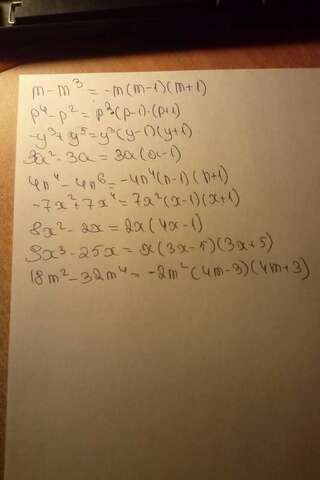 m - m³ = -m(m-1)(m+1)
p⁴ - p² = p²(p-1)·(p+1)
-y³ + y⁵ = y³(y-1)(y+1)
3a² - 3a = 3a(a-1)
4n⁴ - 4n⁶ = -4n⁴(n-1)(n+1)
-7x² + 7x⁴ = 7x²(x-1)(x+1)
8x² - 2x = 2x(4x-1)
9x³ - 25x = x(3x-5)(3x+5)
18m² - 32m⁴ = -2m²(4m-3)(4m+3)